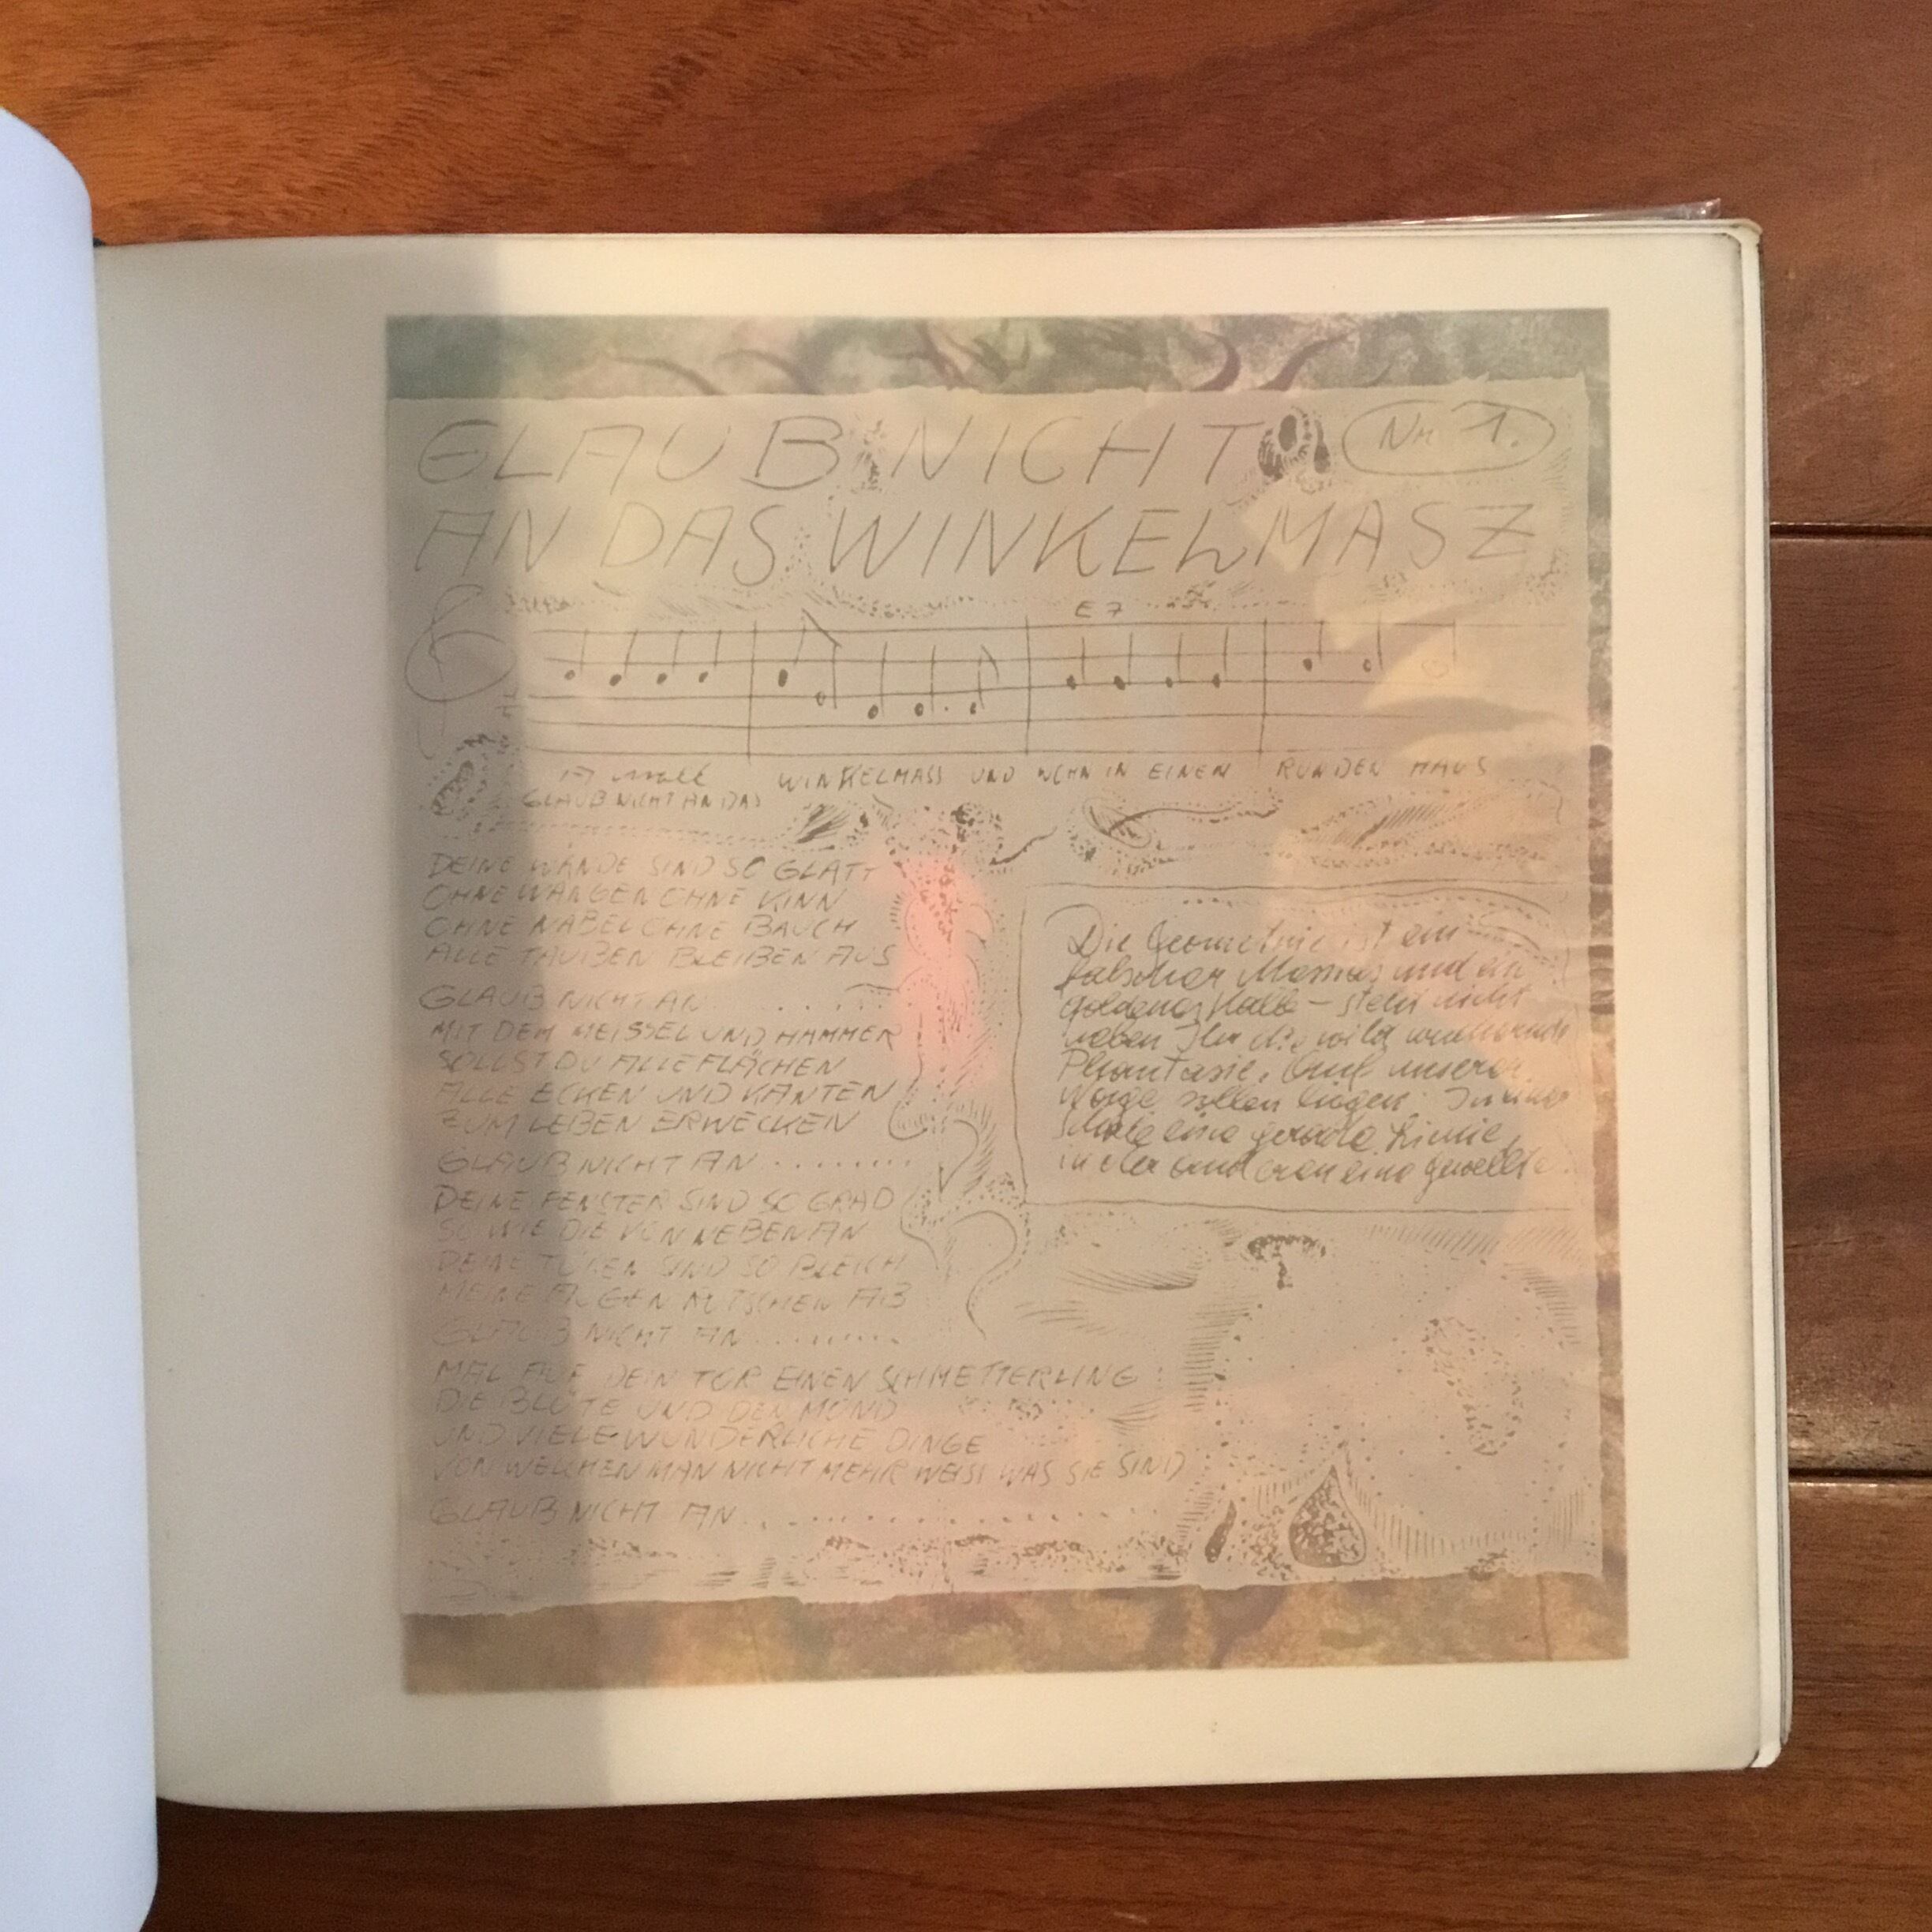 GLAUB NICHT Nr 1.
AN DAS WINKELMASZ
E7
A moll WINKELMASS UND WOHN IN EINEN RUNDEN HAUS
GLAUB NICHT AN DAS
DEINE WÄNDE SIND SO GLATT
OHNE WANGEN OHNE KINN
OHNE NABEL OHNE BAUCH
ALLE TAUBEN BLEIBEN AUS
GLAUB NICHT AN . . . . . . . .
MIT DEM MEISSEL UND HAMMER
SOLLST DU ALLE FLÄCHEN
ALLE ECKEN UND KANTEN
ZUM LEBEN ERWECKEN
GLAUB NICHT AN . . . . . . . .
DEINE FENSTER SIND SO GRAD
SO WIE DIE VON NEBENAN
DEINE TÜREN SIND SO BLEICH
MEINE AUGEN RUTSCHEN AB
GLAUB NICHT AN . . . . . . . .
MAL AUF DEIN TOR EINEN SCHMETTERLING
DIE BLÜTE UND DEN MOND
UND VIELE WUNDERLICHE DINGE
VON WELCHEN MAN NICHT MEHR WEISS WAS SIE SIND
GLAUB NICHT AN . . . . . . . . . . . . . .
Die Geometrie ist ein
falscher Messias und ein
goldenes Kalb – steht nicht
neben Ihr die wild wuchernde
Phantasie. Auf unserer
Waage sollen liegen: In einer
Schale eine gerade Linie,
in der anderen eine gewellte.